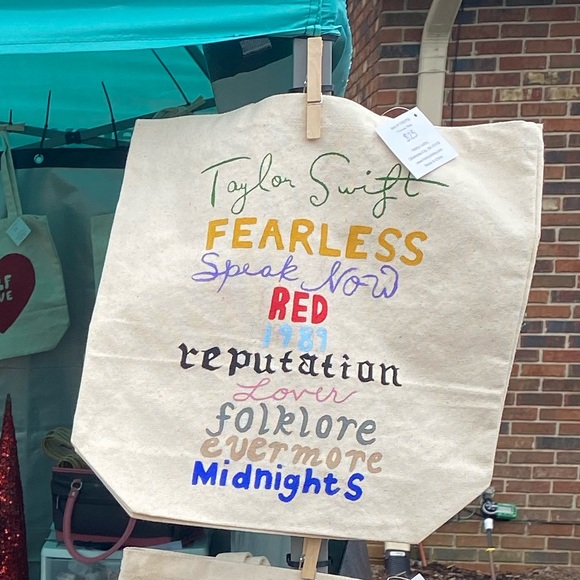 Taylor Swift
FEARLESS
Speak Now
RED
1989
reputation
Lover
folklore
evermore
Midnights
$25